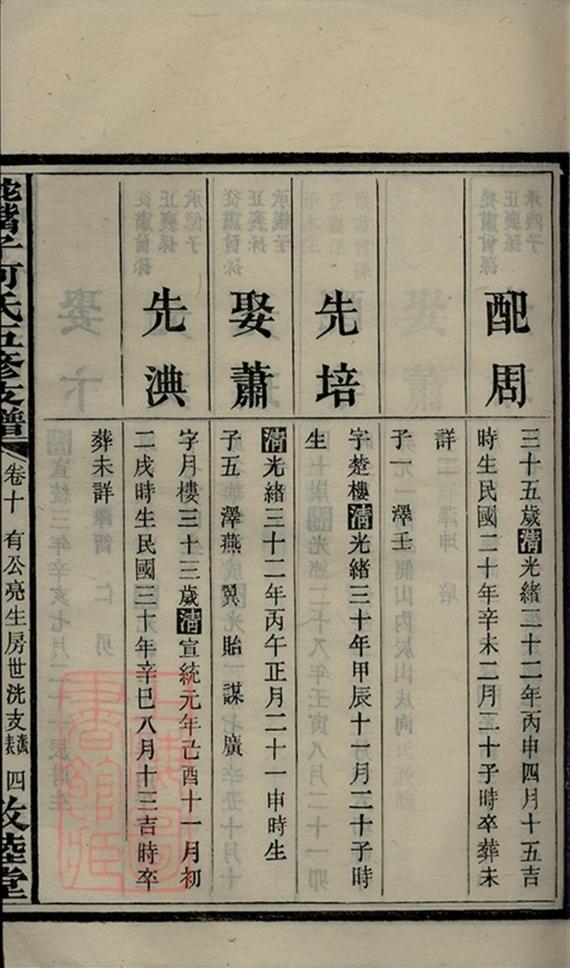 配周
三十五歲清光緒二十二年丙申四月十五吉
時生民國二十年辛未二月三十子時卒葬未
詳
子一 澤壬
先培
字楚樓清光緒三十年甲辰十一月二十子時
生
娶蕭
清光緒三十二年丙午正月二十一申時生
子五 澤燕 翼 貽 謀 廣
先㳟
字月樓三十三歲清宣統元年己酉十一月初
二戌時生民國三十年辛巳八月十三吉時卒
葬未詳
何氏五修支譜
卷十 有公亮生房世洸支 四
敦陸堂